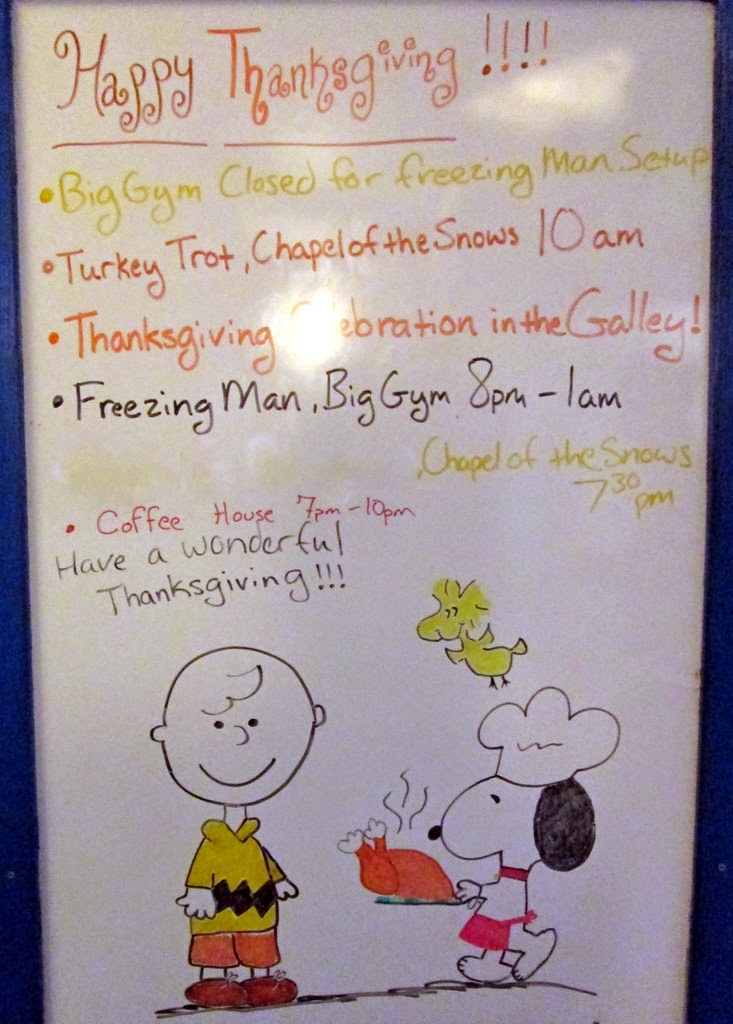 Happy Thanksgiving !!!!
• Big Gym Closed for freezing Man Setup
• Turkey Trot, Chapel of the Snows 10 am
• Thanksgiving Celebration in the Galley!
• Freezing Man, Big Gym 8pm - 1am
Chapel of the Snows
7:30 pm
• Coffee House 7pm - 10pm
Have a wonderful
Thanksgiving!!!